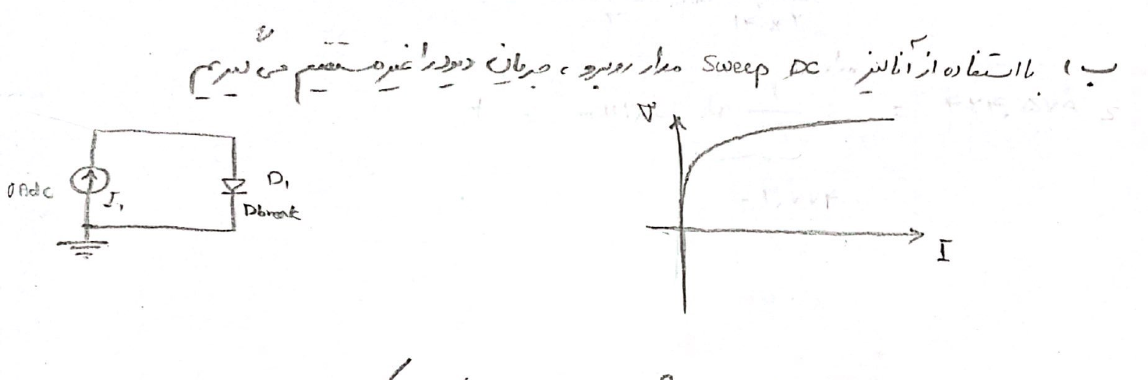 ب) بااستفاده از آنالیز Sweep DC مدار روبرو، جریان دیود را غیرمستقیم می‌گیریم
0Adc
I1
D1
Dbreak
V
I